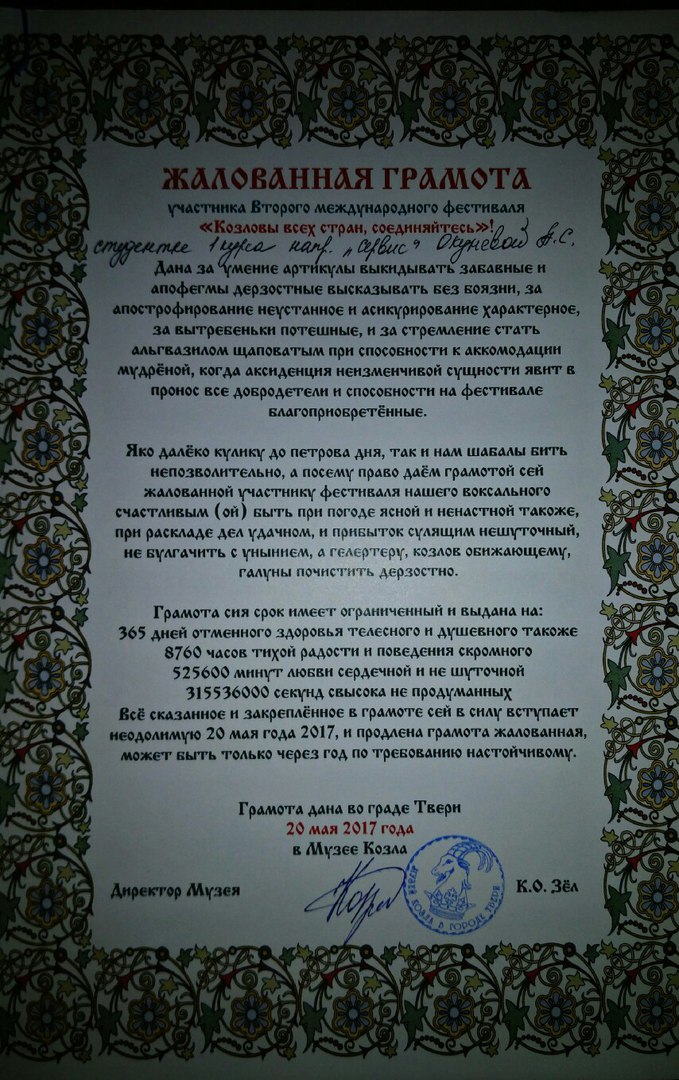 ЖАЛОВАННАЯ ГРАМОТА
участника Второго международного фестиваля
«Козловы всех стран, соединяйтесь»!
студентке 1 курса напр. "Сервис" Окуневой А.С.
Дана за умение артикулы выкидывать забавные и
апофегмы дерзостные высказывать без боязни, за
апострофирование неустанное и асикурирование характерное,
за вытребеньки потешные, и за стремление стать
альгвазилом щаповатым при способности к аккомодации
мудрёной, когда аксиденция неизменчивой сущности явит в
пронос все добродетели и способности на фестивале
благоприобретённые.
Яко далёко кулику до петрова дня, так и нам шабалы бить
непозволительно, а посему право даём грамотой сей
жалованной участнику фестиваля нашего воксального
счастливым (ой) быть при погоде ясной и ненастной такоже,
при раскладе дел удачном, и прибыток сулящим нешуточный,
не булгачить с унынием, а гелертеру, козлов обижающему,
галуны почистить дерзостно.
Грамота сия срок имеет ограниченный и выдана на:
365 дней отменного здоровья телесного и душевного такоже
8760 часов тихой радости и поведения скромного
525600 минут любви сердечной и не шуточной
315536000 секунд свысока не продуманных
Всё сказанное и закреплённое в грамоте сей в силу вступает
неодолимую 20 мая года 2017, и продлена грамота жалованная,
может быть только через год по требованию настойчивому.
Грамота дана во граде Твери
20 мая 2017 года
в Музее Козла
Директор Музея
К.О. Зёл
МУЗЕЙ КОЗЛА В ГОРОДЕ ТВЕРИ